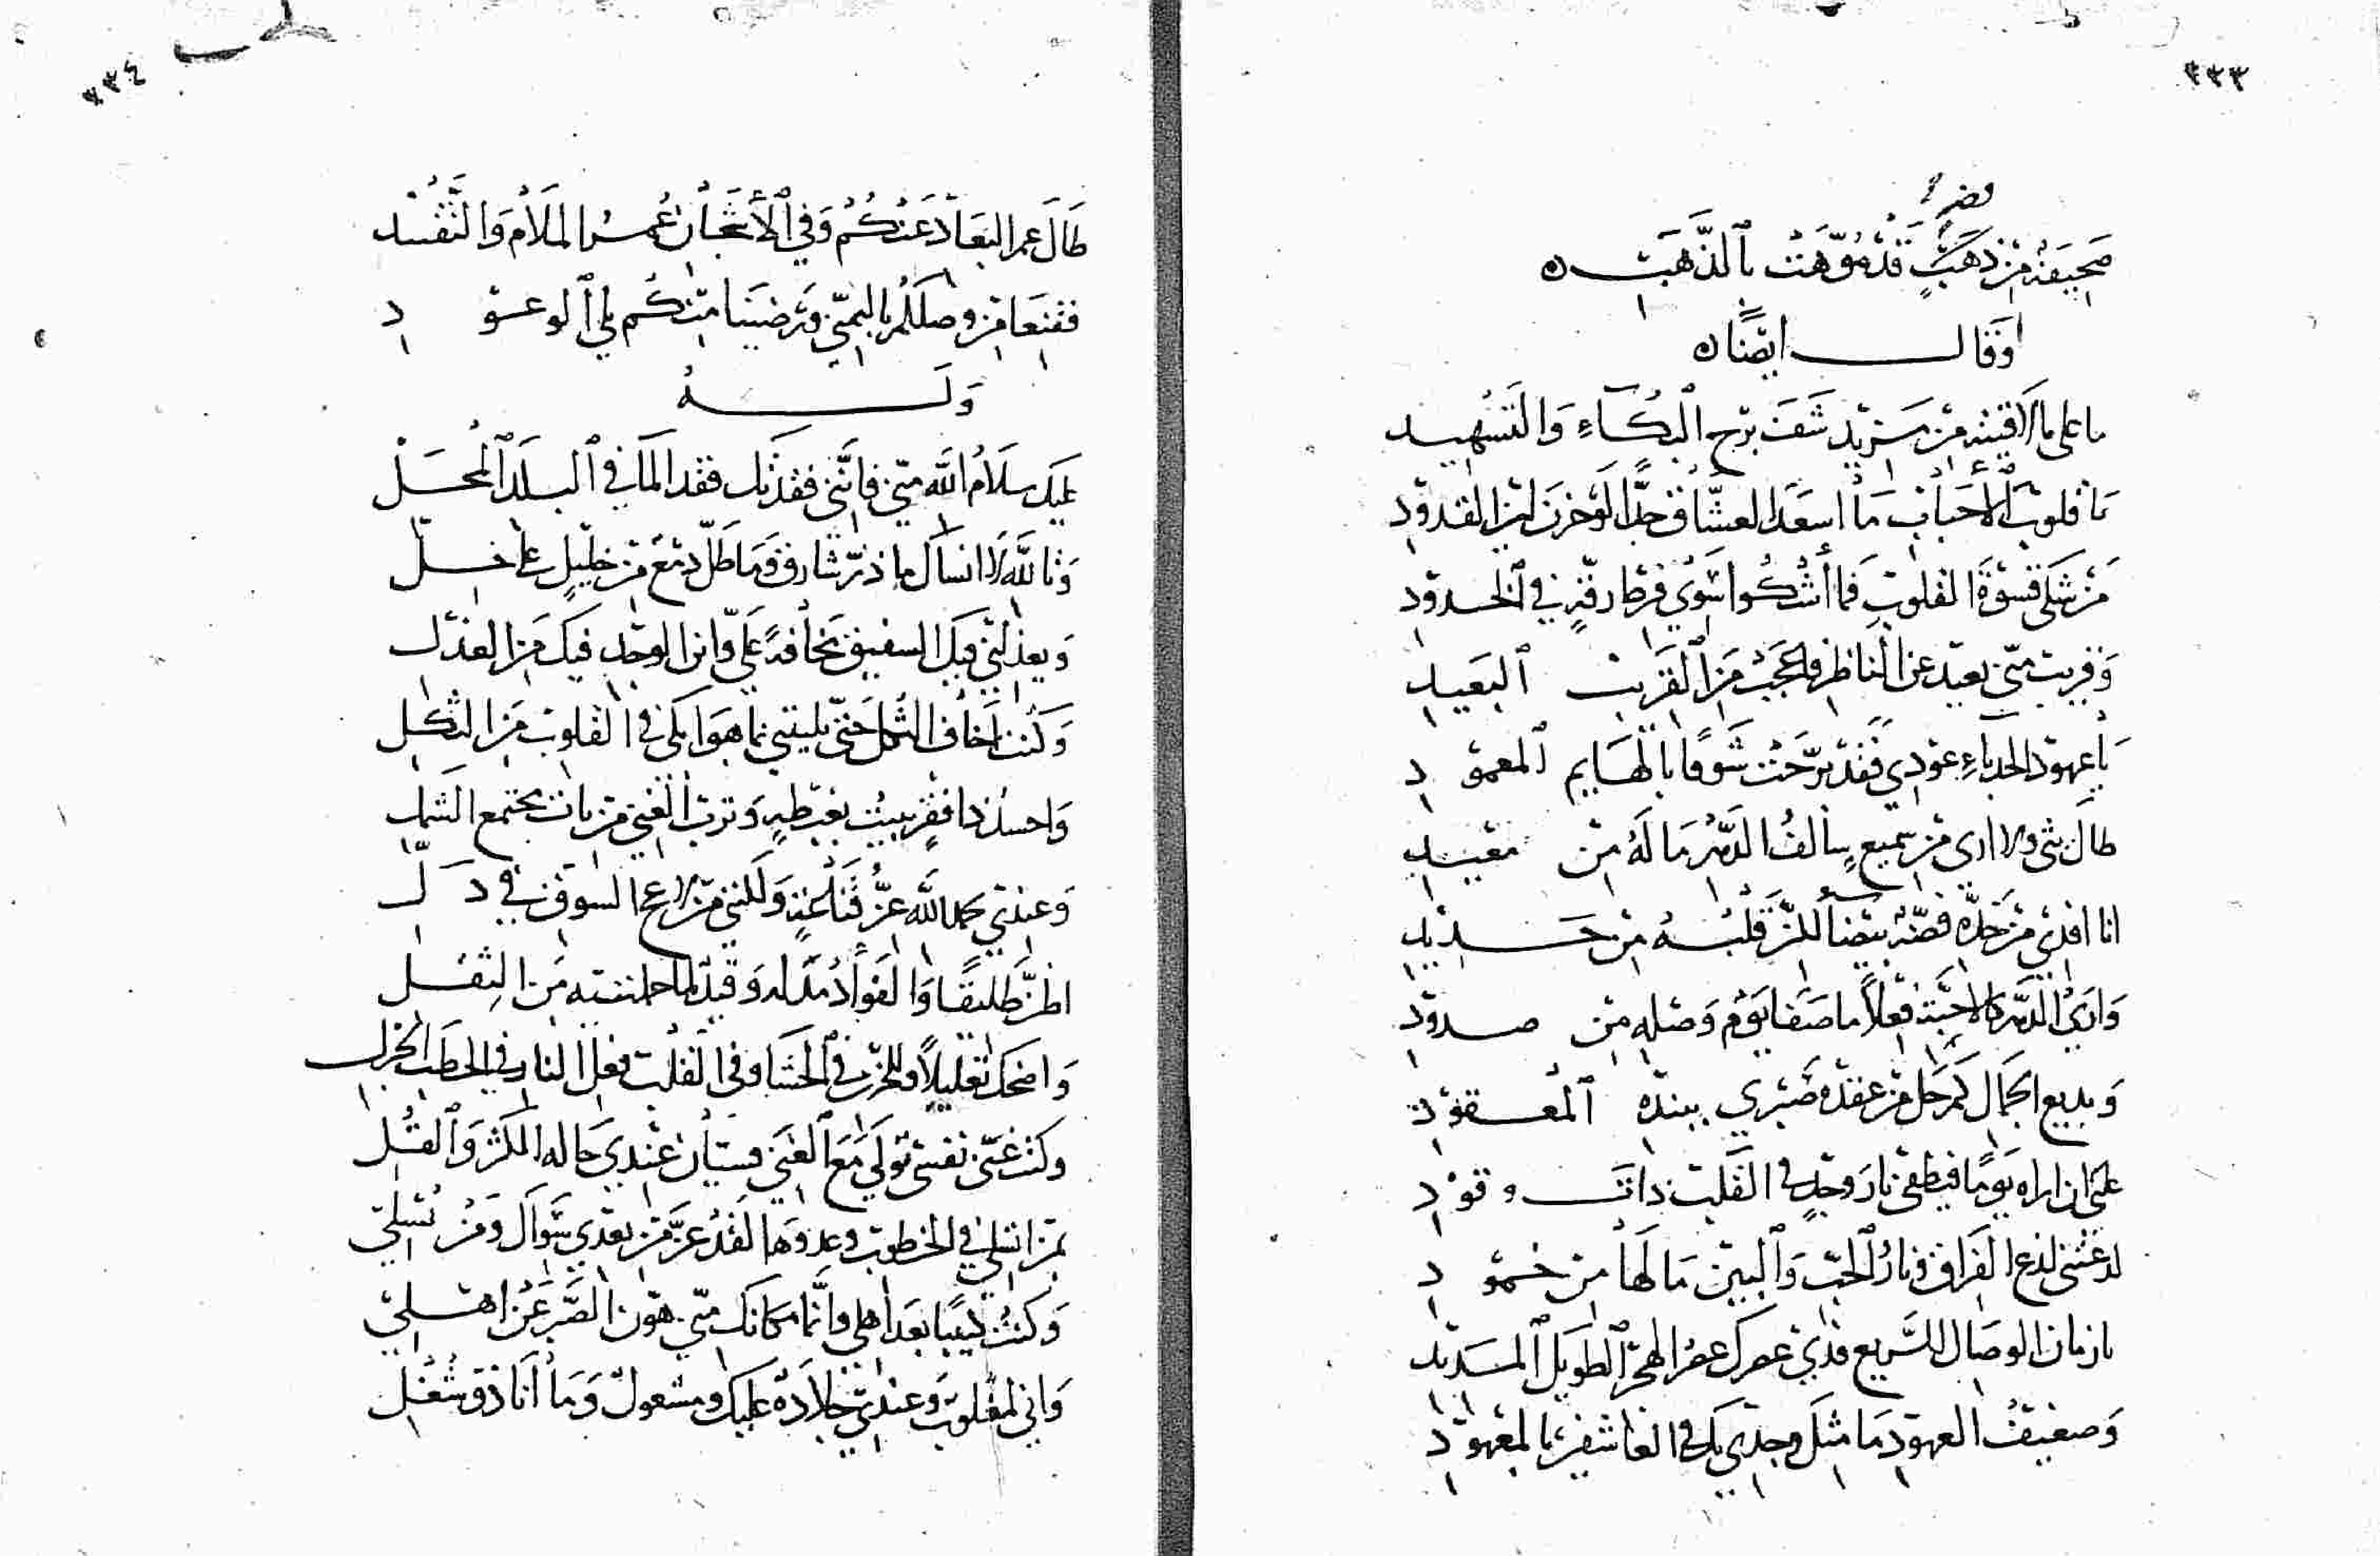 ٣٣٣
صحيفة من ذهب قد موهت بالذهب ه
وقال ايضا ه
ما على ما لاقيته من مزيد شف برح البكاء والتسهيد
يا قلوب الاحباب ما اسعد العشاق جدا لو حزن لين القدود
من شكى قسوة القلوب فما أشكوا سوى فرط رقة في الخدود
وقريب مني بعيد عن الناظر فاعجب من القريب البعيد
يا عهود الحدباء عودي فقد برحت شوقا بالهايم المعمود
طال بثي ولا ارى من سميع سالف الدهر ما له من معيد
انا افدي من خده فضة بيضا لكن قلبه من حديد
وارى الدهر كالاحبة فعلا ما صفا يوم وصله من صدود
وبديع الجمال كم حل من عقدة صبري ببنده المعقود
علني ان اراه يوما فيطفي نار وجد في القلب ذات وقود
لدغتني لذع الفراق ونار الحب والبين ما لها من خمود
يا زمان الوصال السريع فدى عمرك عمر الهجر الطويل المديد
وضعيف العهود ما مثل وجدي بك في العاشقين بالمعهود
٣٣٤
طال عمر البعاد عنكم وفي الأشجان عمر الملام والتفنيد
فقنعنا من وصلكم بالتمني ورضينا منكم بلي الوعود
وله
عليك سلام الله مني فانني فقدتك فقد الما في البلد المحل
وتالله لا انساك ما ذر شارق وما طل دمع من خليل على خل
ويعذلني فيك الشفيق مخافة علي واين الوجد فيك من العذل
وكنت اخاف الثكل حتى بليتني بما هو ابكى في القلوب من الثكل
واحسد ذا فقر يبيت بغبطة وترب الغنى من بات مجتمع الشمل
وعندي بحمد الله عز قناعة ولكنني من لاعج الشوق في ذل
اظن طليقا والفؤاد مدله وقيد لما حملتنيه من الثقل
واضحك تعليلا وللحزن في الحشا وفي القلب فعل النار في الحطب الجزل
وكنت غنى نفسي تولى مع الغنى فسيان عندي حاله المكثر والقل
بمن اتسلى في الخطوب وعدوها لقد عز من بعدي سواك ومن يسلي
وكنت كئيبا بعد اهلي وانما مكانك مني هون الصبر عن اهلي
واني لمغلوب وعندي جلادة عليك ومشغول وما أنا ذو شغل